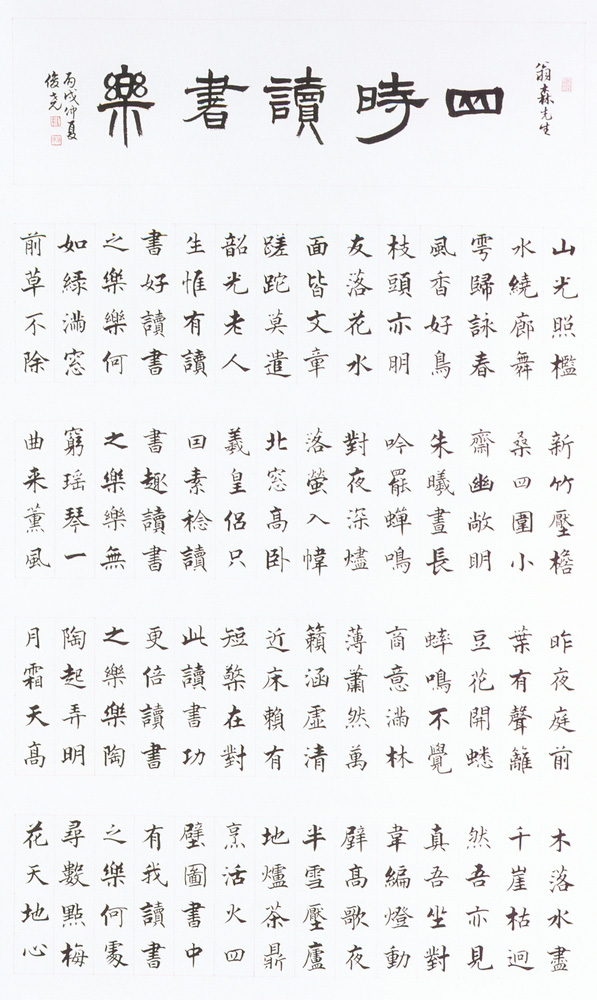 翁森先生
四時讀書樂
丙戌仲夏
俊堯
山光照檻
水繞廊舞
雩歸詠春
風香好鳥
枝頭亦明
友落花水
面皆文章
蹉跎莫遣
韶光老人
生惟有讀
書好讀書
之樂樂何
如綠滿窓
前草不除
新竹壓檐
桑四圍小
齋幽敞明
朱曦晝長
吟罷蟬鳴
對夜深燼
落螢入幃
北窓高卧
羲皇侶只
囙素稔讀
書趣讀書
之樂樂無
窮瑤琴一
曲来薰風
昨夜庭前
葉有聲籬
豆花開蟋
蟀鳴不覺
商意滿林
薄蕭然萬
籟涵虛清
近床賴有
短檠在對
此讀書功
更倍讀書
之樂樂陶
陶起弄明
月霜天高
木落水盡
千崖枯迥
然吾亦見
真吾坐對
韋編燈動
壁高歌夜
半雪壓廬
地爐茶鼎
烹活火四
壁圖書中
有我讀書
之樂何處
尋數點梅
花天地心